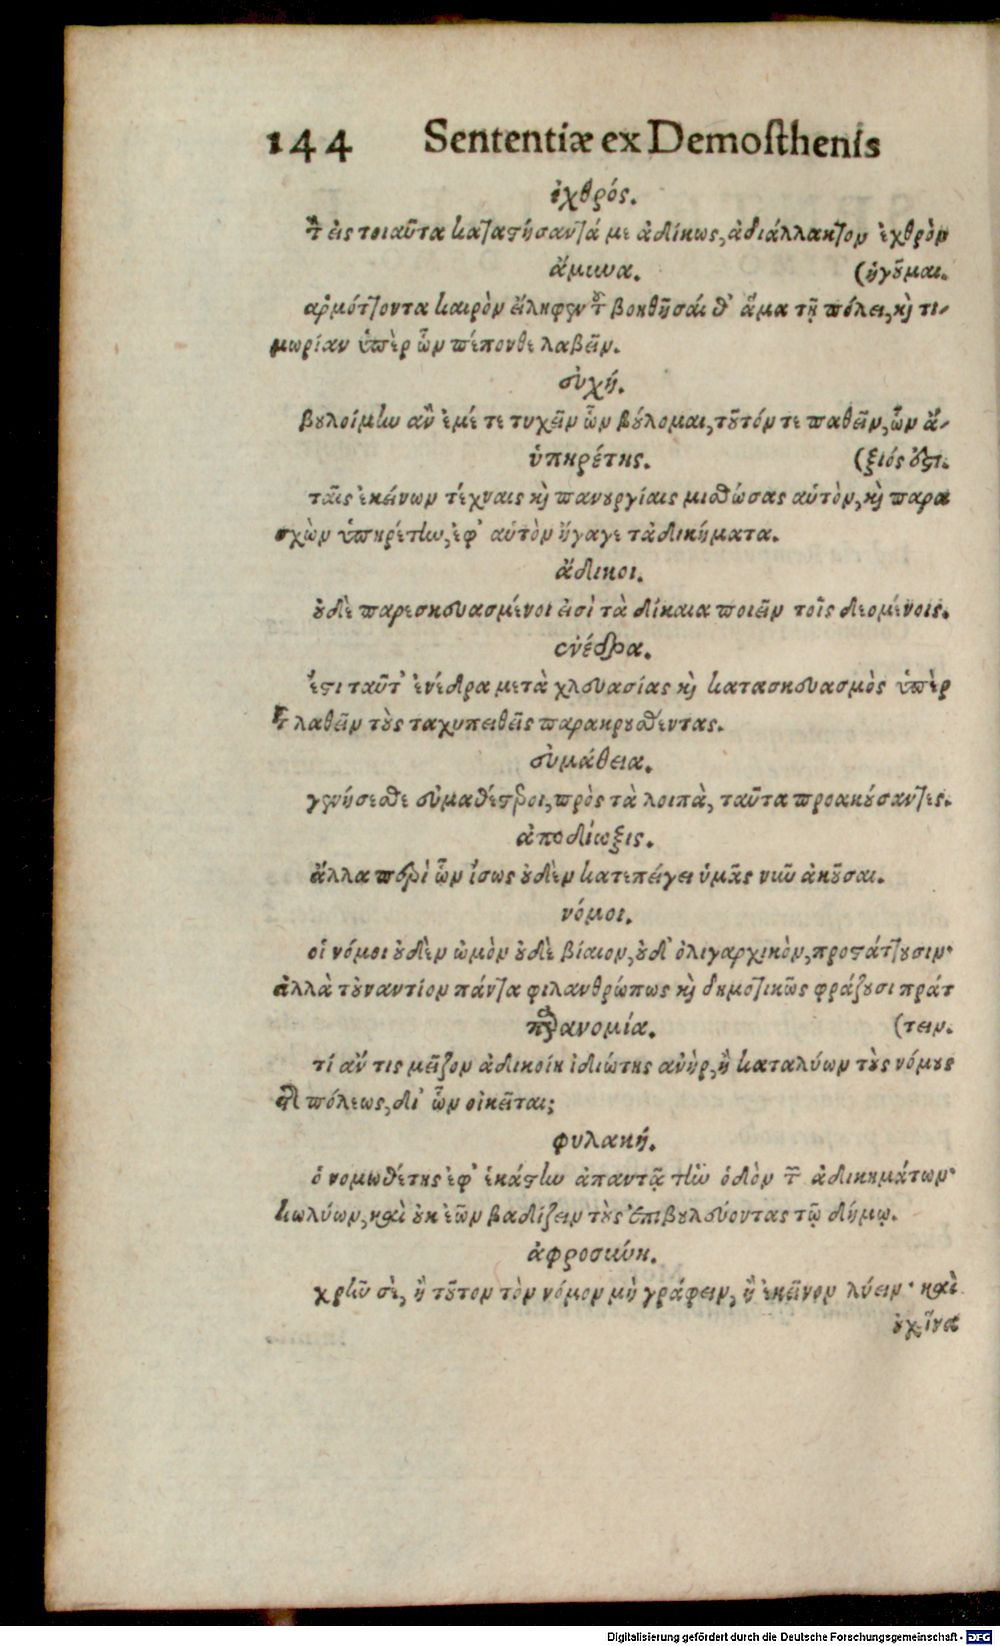 144 Sententiæ ex Demosthenis
ἐχθρός.
τὸν εἰς τοιαῦτα καταστήσαντά με ἀδίκως, ἀδιάλλακτον ἐχθρὸν
ἄμυνα. (ἡγοῦμαι.
ἁρμόττοντα καιρὸν εἴληφεν τοῦ βοηθῆσαί θ' ἅμα τῇ πόλει, καὶ τι-
μωρίαν ὑπὲρ ὧν πέπονθε λαβεῖν.
εὐχή.
βουλοίμην ἂν ἐμέ τε τυχεῖν ὧν βούλομαι, τοῦτόν τε παθεῖν, ὧν ἄ-
ὑπηρέτης. (ξιός ἐστι.
ταῖς ἐκείνων τέχναις καὶ πανουργίαις μισθώσας αὑτὸν, καὶ παρα
σχὼν ὑπηρέτην, ἐφ' αὑτὸν ἤγαγε τἀδικήματα.
ἄδικοι.
οὐδὲ παρεσκευασμένοι εἰσὶ τὰ δίκαια ποιεῖν τοῖς δεομένοις.
ἐνέδρα.
ἔστι ταῦτ' ἐνέδρα μετὰ χλευασίας καὶ κατασκευασμὸς ὑπὲρ
τοῦ λαθεῖν τοὺς ταχυπειθεῖς παρακρουσθέντας.
εὐμάθεια.
γενήσεσθε εὐμαθέστεροι, πρὸς τὰ λοιπὰ, ταῦτα προακούσαντες.
ἀποδίωξις.
ἄλλα περὶ ὧν ἴσως οὐδὲν κατεπείγει ὑμᾶς νῦν ἀκοῦσαι.
νόμοι.
οἱ νόμοι οὐδὲν ὠμὸν οὐδὲ βίαιον, οὐδ' ὀλιγαρχικὸν, προστάττουσιν·
ἀλλὰ τοὐναντίον πάντα φιλανθρώπως καὶ δημοτικῶς φράζουσι πράτ
παρανομία. (τειν.
τί ἄν τις μεῖζον ἀδικοίη ἰδιώτης ἀνὴρ, ἢ καταλύων τοὺς νόμους
τῆς πόλεως, δι' ὧν οἰκεῖται;
φυλακή.
ὁ νομωθέτης ἐφ' ἑκάστην ἀπαντᾷ τὴν ὁδὸν τῶν ἀδικημάτων·
κωλύων, καὶ οὐκ ἐῶν βαδίζειν τοὺς ἐπιβουλεύοντας τῷ δήμῳ.
ἀφροσύνη.
χρῆν σὲ, ἢ τοῦτον τὸν νόμον μὴ γράφειν, ἢ ἐκεῖνον λύειν· καὶ
οὐχ ἵνα
Digitalisierung gefördert durch die Deutsche Forschungsgemeinschaft - DFG